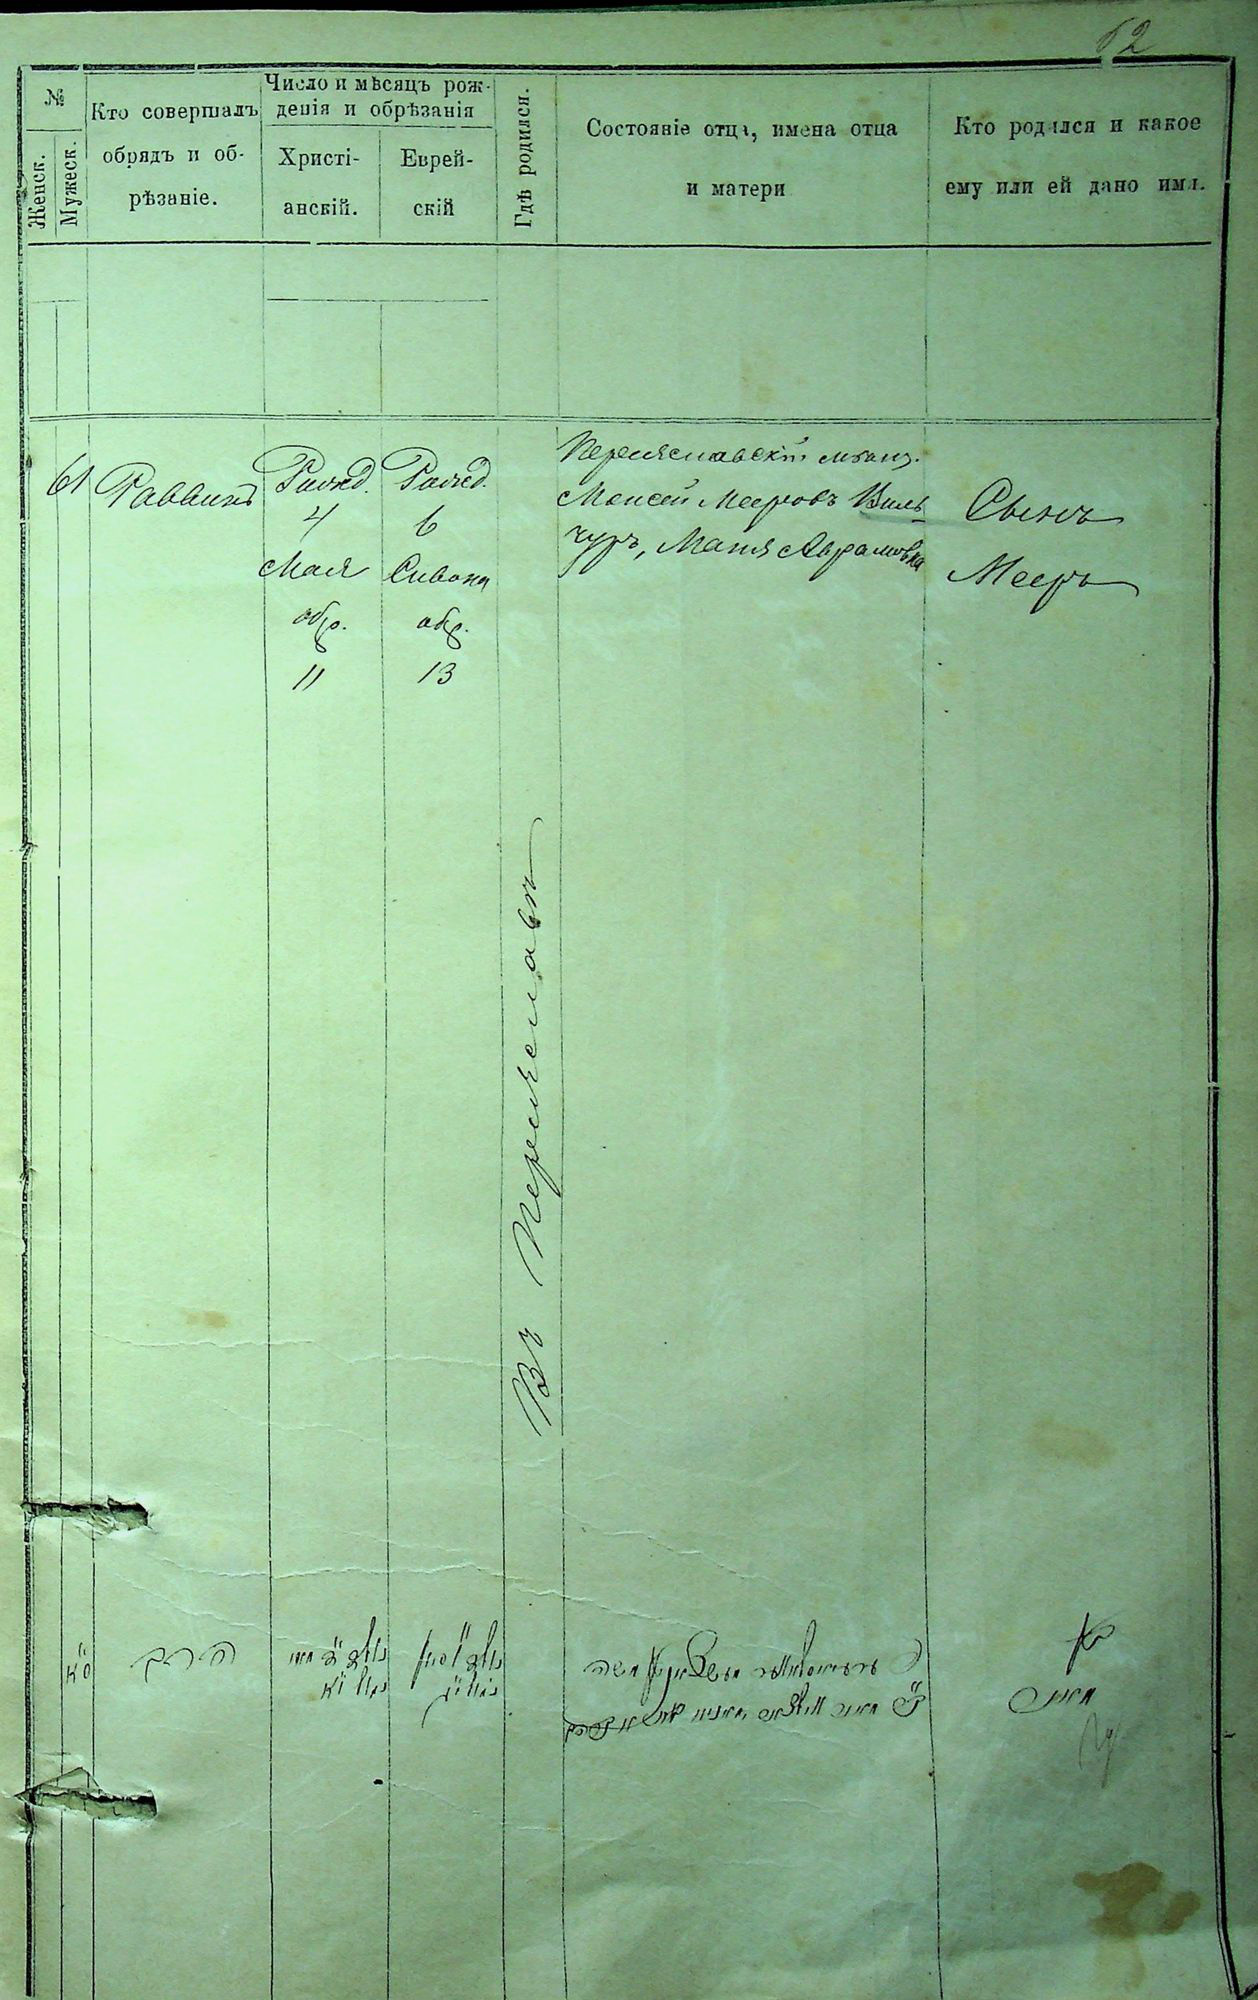 62
№
Женск.
Мужеск.
Кто совершалъ
обрядъ и об-
рѣзаніе.
Число и мѣсяцъ рож-
денія и обрѣзанія
Христі-
анскій.
Еврей-
скій
Гдѣ родился.
Состояніе отца, имена отца
и матери
Кто родился и какое
ему или ей дано имя.
61
Раввинъ
Рожд.
4
Мая
обр.
11
Рожд.
6
Сивона
обр.
13
Въ Переяславѣ
Переяславскій мѣщ.
Моисей Мееровъ Виль
чуръ, Маня Аврамовна
Сынъ
Мееръ
הרב
משה
בן
מאיר